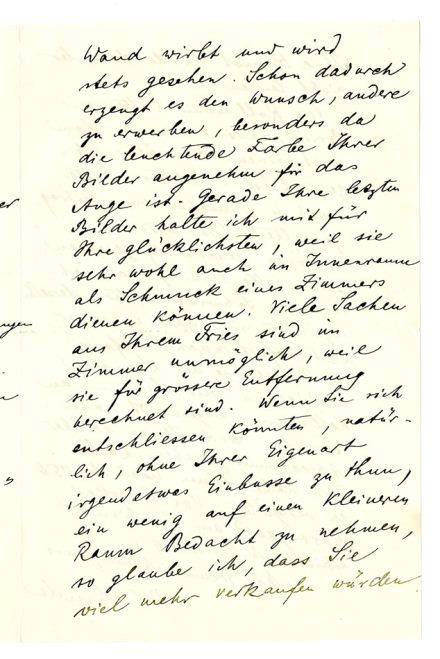 Wand wirkt und wird
stets gesehen. Schon dadurch
erzeugt es den Wunsch, andere
zu erwerben, besonders da
die leuchtende Farbe Ihrer
Bilder angenehm für das
Auge ist. Gerade Ihre letzten
er
Bilder halte ich mit für
Ihre glücklichsten, weil sie
sehr wohl auch im Innenraum
als Schmuck eines Zimmers
dienen können. Viele Sachen
ngen
aus Ihrem Fries sind im
Zimmer unmöglich, weil
sie für grössere Entfernung
berechnet sind. Wenn Sie sich
entschliessen könnten, natür-
lich, ohne Ihrer Eigenart
irgendetwas Einbusse zu thun,
ein wenig auf einen kleineren
Raum Bedacht zu nehmen,
so glaube ich, dass Sie
viel mehr verkaufen würden.